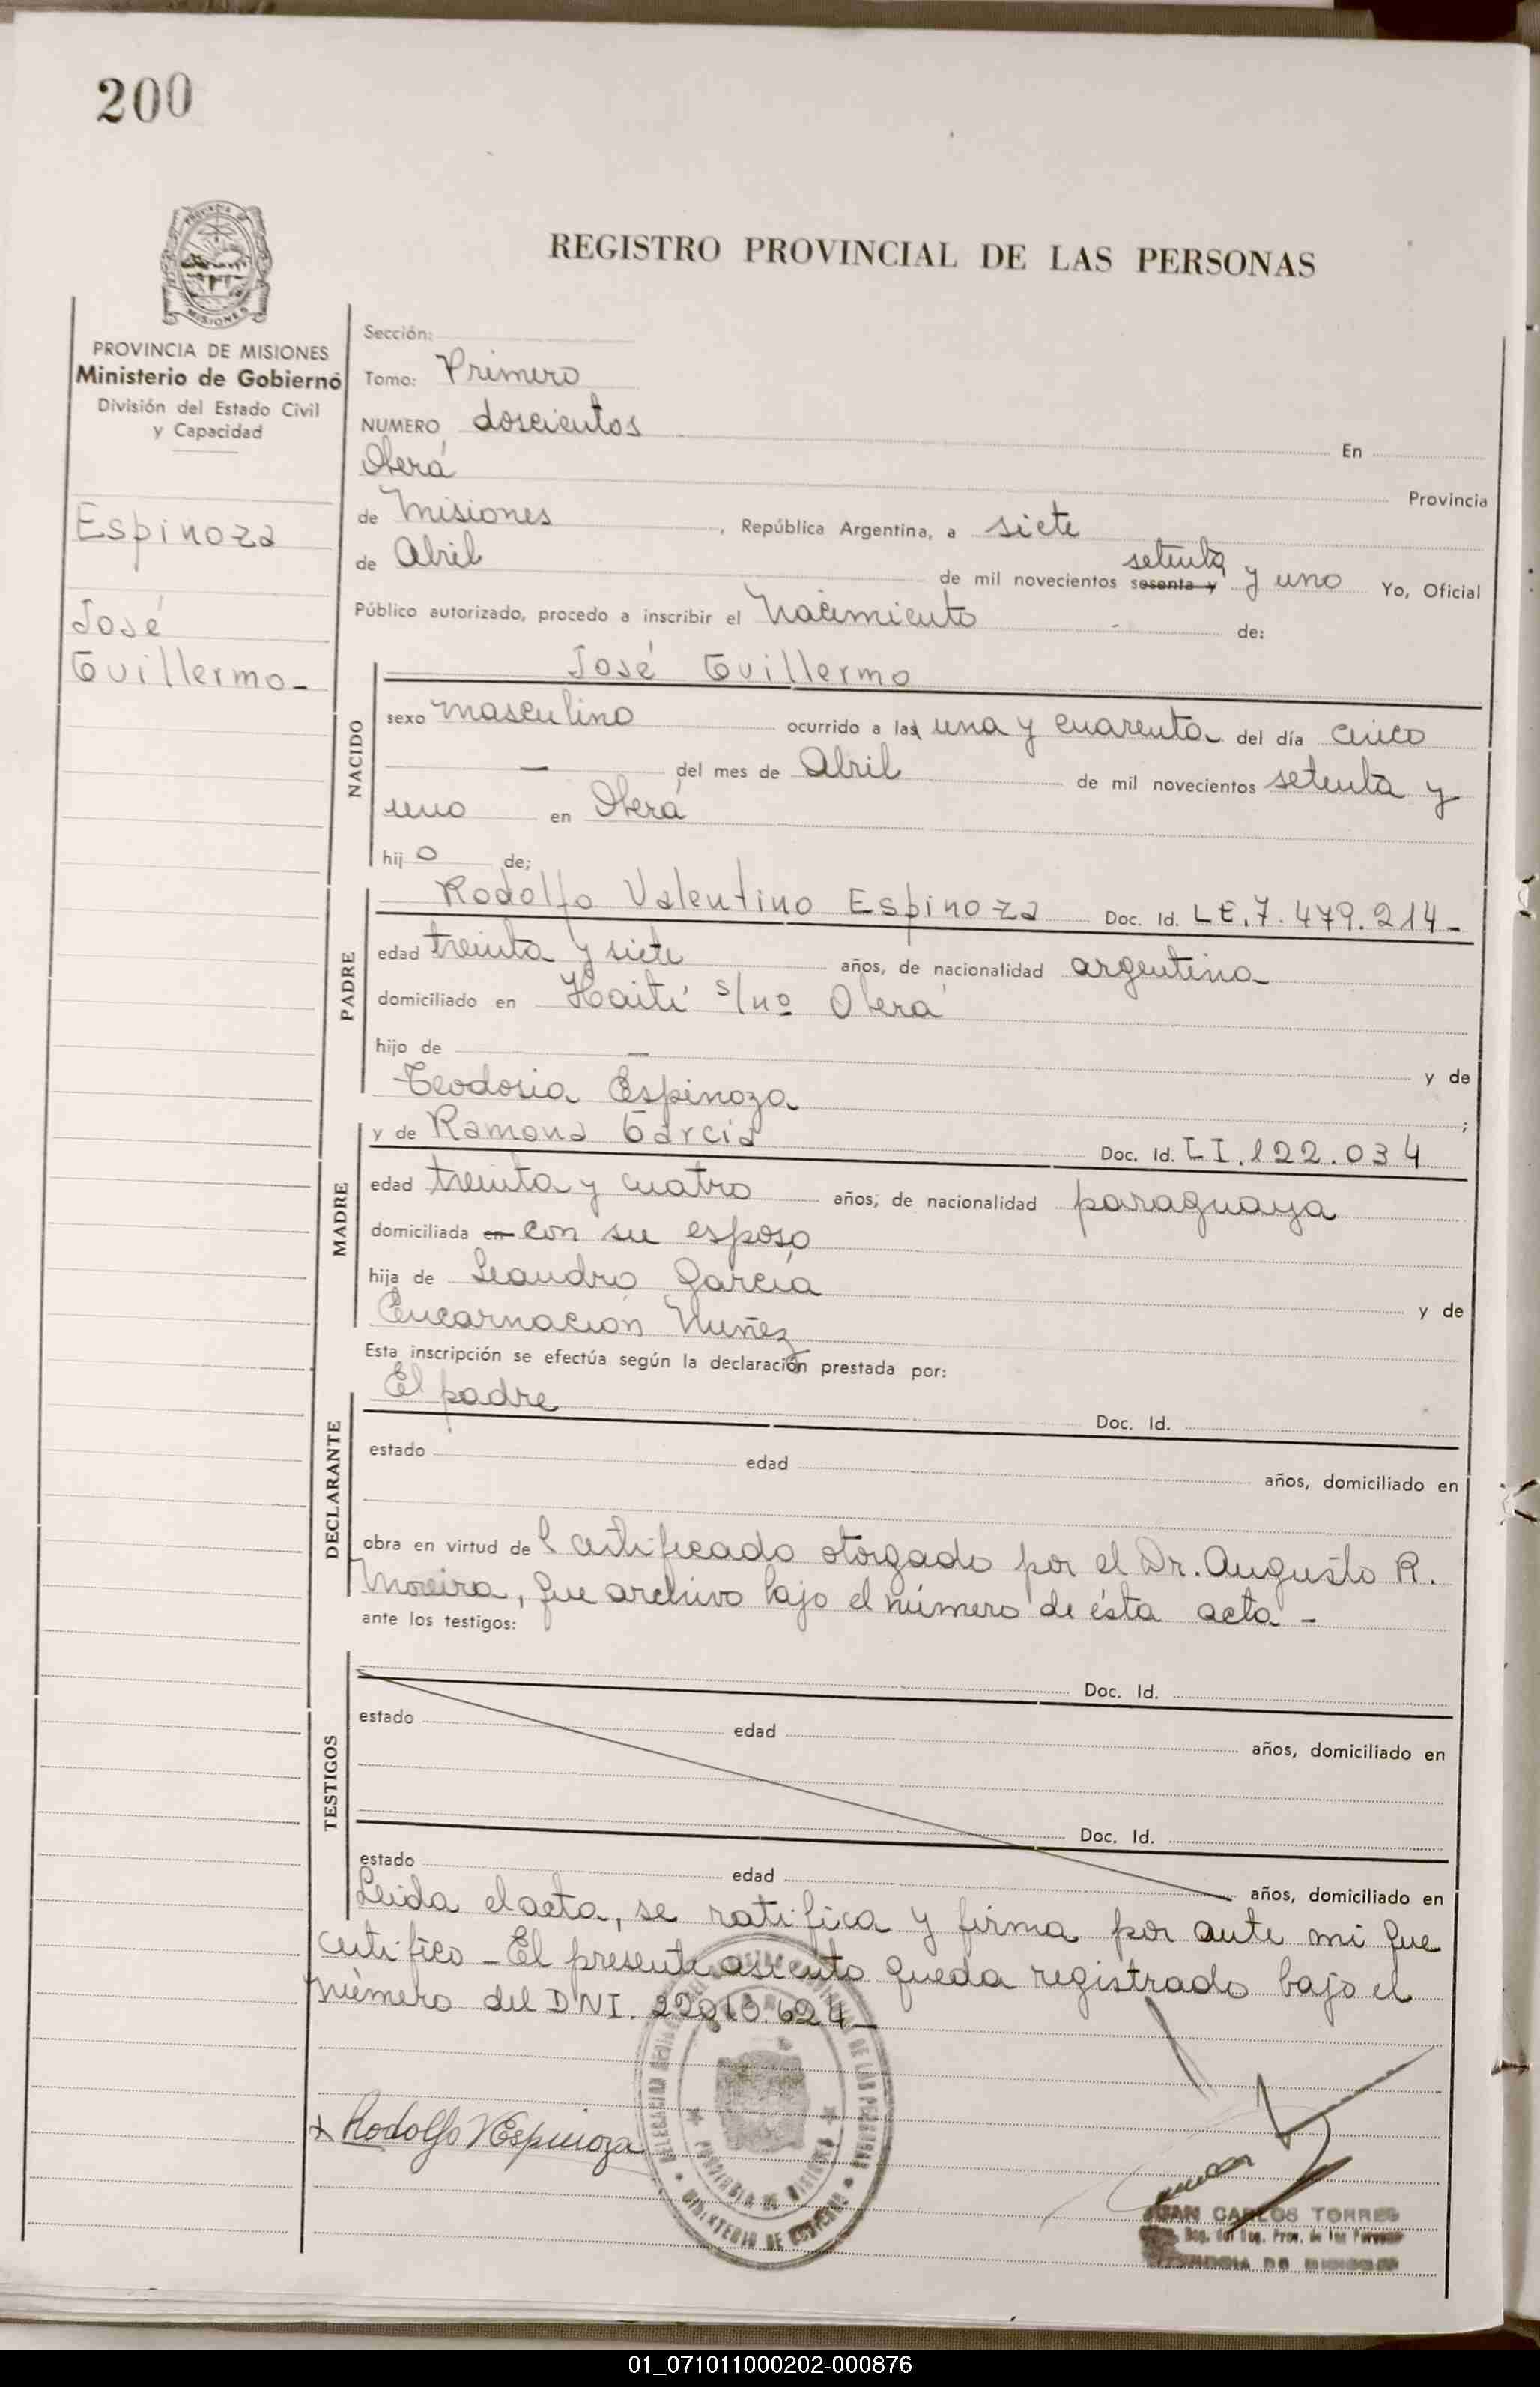 200
REGISTRO PROVINCIAL DE LAS PERSONAS
MISIONES
PROVINCIA DE MISIONES
Ministerio de Gobierno
División del Estado Civil
y Capacidad
Espinoza
José
Guillermo-
Sección:
Tomo: Primero
NUMERO doscientos En
Oberá Provincia
de Misiones , República Argentina, a siete
de Abril de mil novecientos sesenta y setenta y uno Yo, Oficial
Público autorizado, procedo a inscribir el Nacimiento de:
José Guillermo
NACIDO
sexo masculino ocurrido a las una y cuarenta del día cinco
— del mes de Abril de mil novecientos setenta y
uno en Oberá
hijo de:
PADRE
Rodolfo Valentino Espinoza Doc. Id. LE.7.479.214-
edad treinta y siete años, de nacionalidad argentina
domiciliado en Haití s/nº Oberá
hijo de — y de
Teodosia Espinoza ;
MADRE
y de Ramona Garcia Doc. Id. CI.122.034
edad treinta y cuatro años, de nacionalidad paraguaya
domiciliada en con su esposo
hija de Leandro García y de
Encarnación Nuñez
Esta inscripción se efectúa según la declaración prestada por:
DECLARANTE
El padre Doc. Id.
estado edad años, domiciliado en
obra en virtud del certificado otorgado por el Dr. Augusto R.
Moreira, que archivo bajo el número de ésta acta -
ante los testigos:
TESTIGOS
Doc. Id.
estado edad años, domiciliado en
Doc. Id.
estado edad años, domiciliado en
Leida el acta, se ratifica y firma por ante mi que
certifico - El presente asiento queda registrado bajo el
número del DNI. 22.010.624-
x Rodolfo V Espinoza
PROVINCIA DE MISIONES
MINISTERIO DE GOBIERNO
JUAN CARLOS TORRES
Reg. Prov. de las Personas
PROVINCIA DE MISIONES
01_071011000202-000876